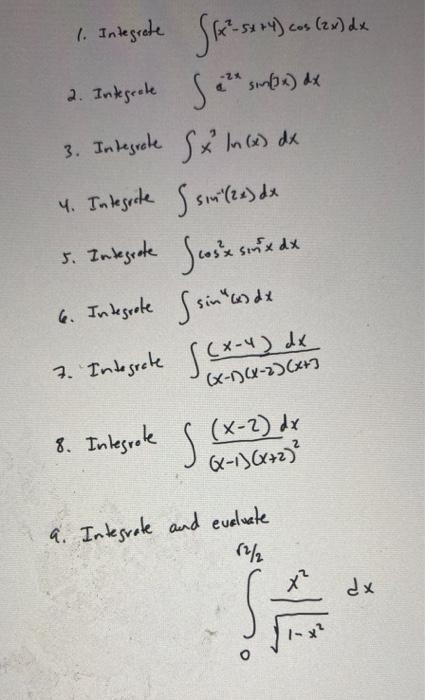 1. Integrate ∫(x²-5x+4) cos (2x) dx
2. Integrate ∫ e^-2x sin(3x) dx
3. Integrate ∫ x³ ln(x) dx
4. Integrate ∫ sin⁻¹(2x) dx
5. Integrate ∫ cos²x sin⁵x dx
6. Integrate ∫ sin⁴(x) dx
7. Integrate ∫ (x-4) dx / (x-1)(x-2)(x+3
8. Integrate ∫ (x-2) dx / (x-1)(x+2)²
9. Integrate and evaluate
∫₀^(√2/2) x² / √(1-x²) dx